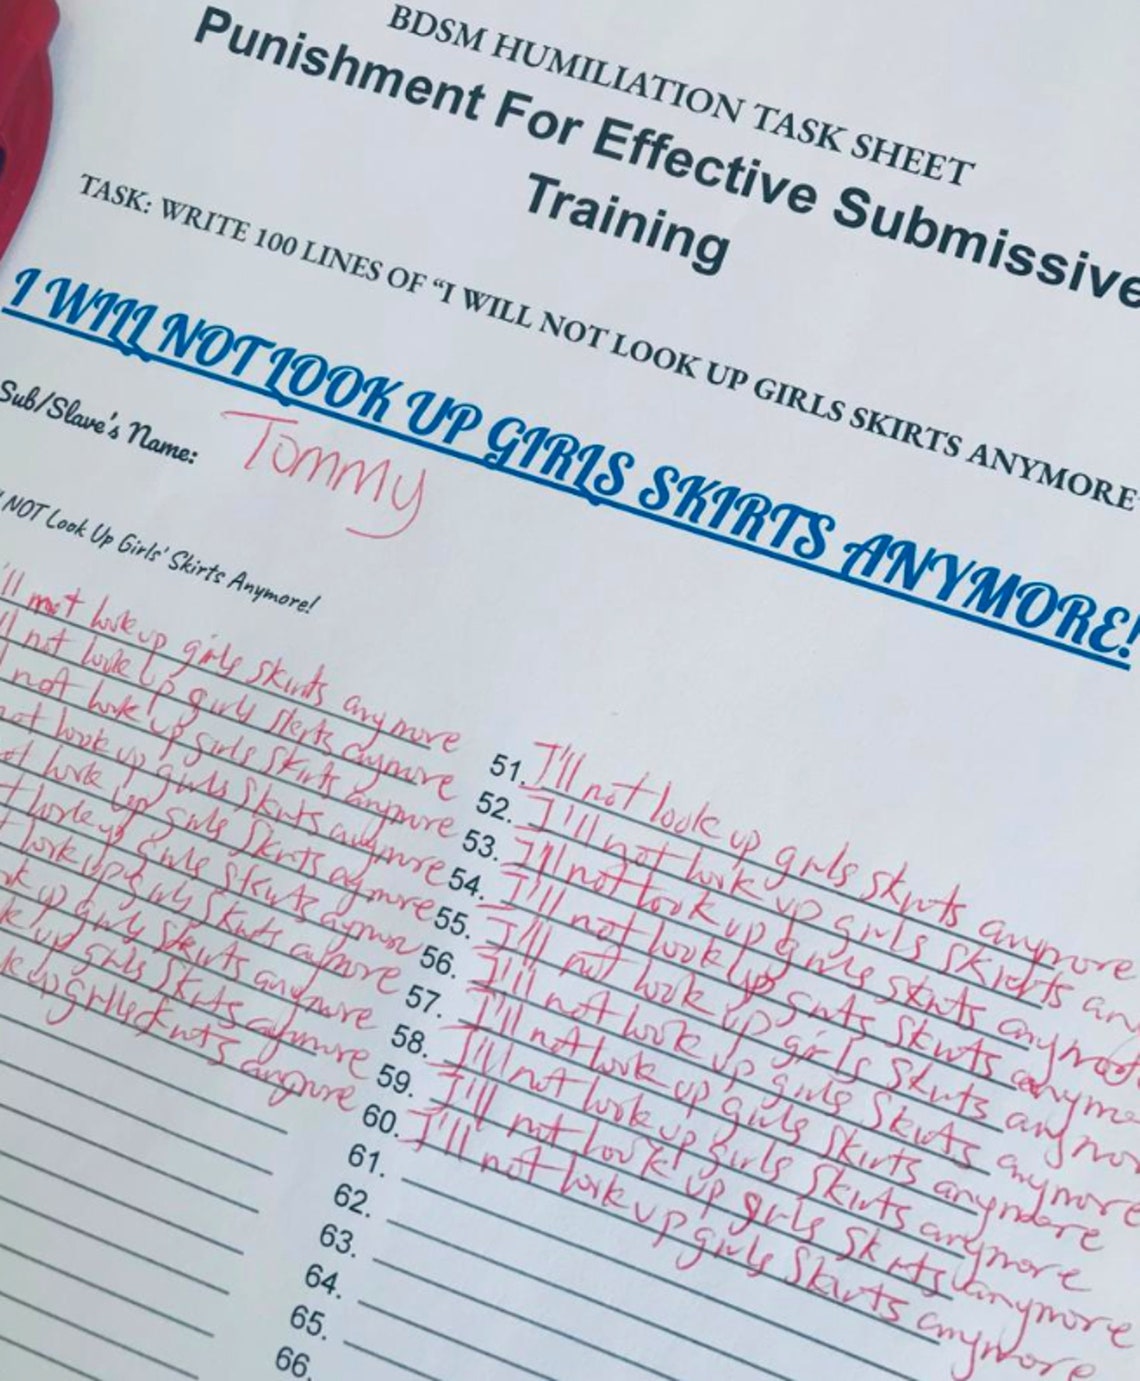 BDSM HUMILIATION TASK SHEET
Punishment For Effective Submissive
Training
TASK: WRITE 100 LINES OF “I WILL NOT LOOK UP GIRLS SKIRTS ANYMORE”
I WILL NOT LOOK UP GIRLS SKIRTS ANYMORE!
Sub/Slave's Name: Tommy
NOT Look Up Girls' Skirts Anymore!
'll not look up girls skirts anymore
'll not look up girls skerts anymore
not look up girls skirts anymore
not look up girls skirts anymore
look up girls skirts anymore
look up girls skirts anymore
look up girls skirts anymore
up girls skerts anymore
up girls skirts anymore
up girls skirts anymore
51. I'll not look up girls skirts anymore
52. I'll not look up girls skirts
53. I'll not look up girls skirts anymore
54. I'll not look up girls skirts
55. I'll not look up girls skirts
56. I'll not look up girls skirts anymore
57. I'll not look up girls skirts anymore
58. I'll not look up girls skirts anymore
59. I'll not look up girls skirts anymore
60. I'll not look up girls skirts anymore
61.
62.
63.
64.
65.
66.